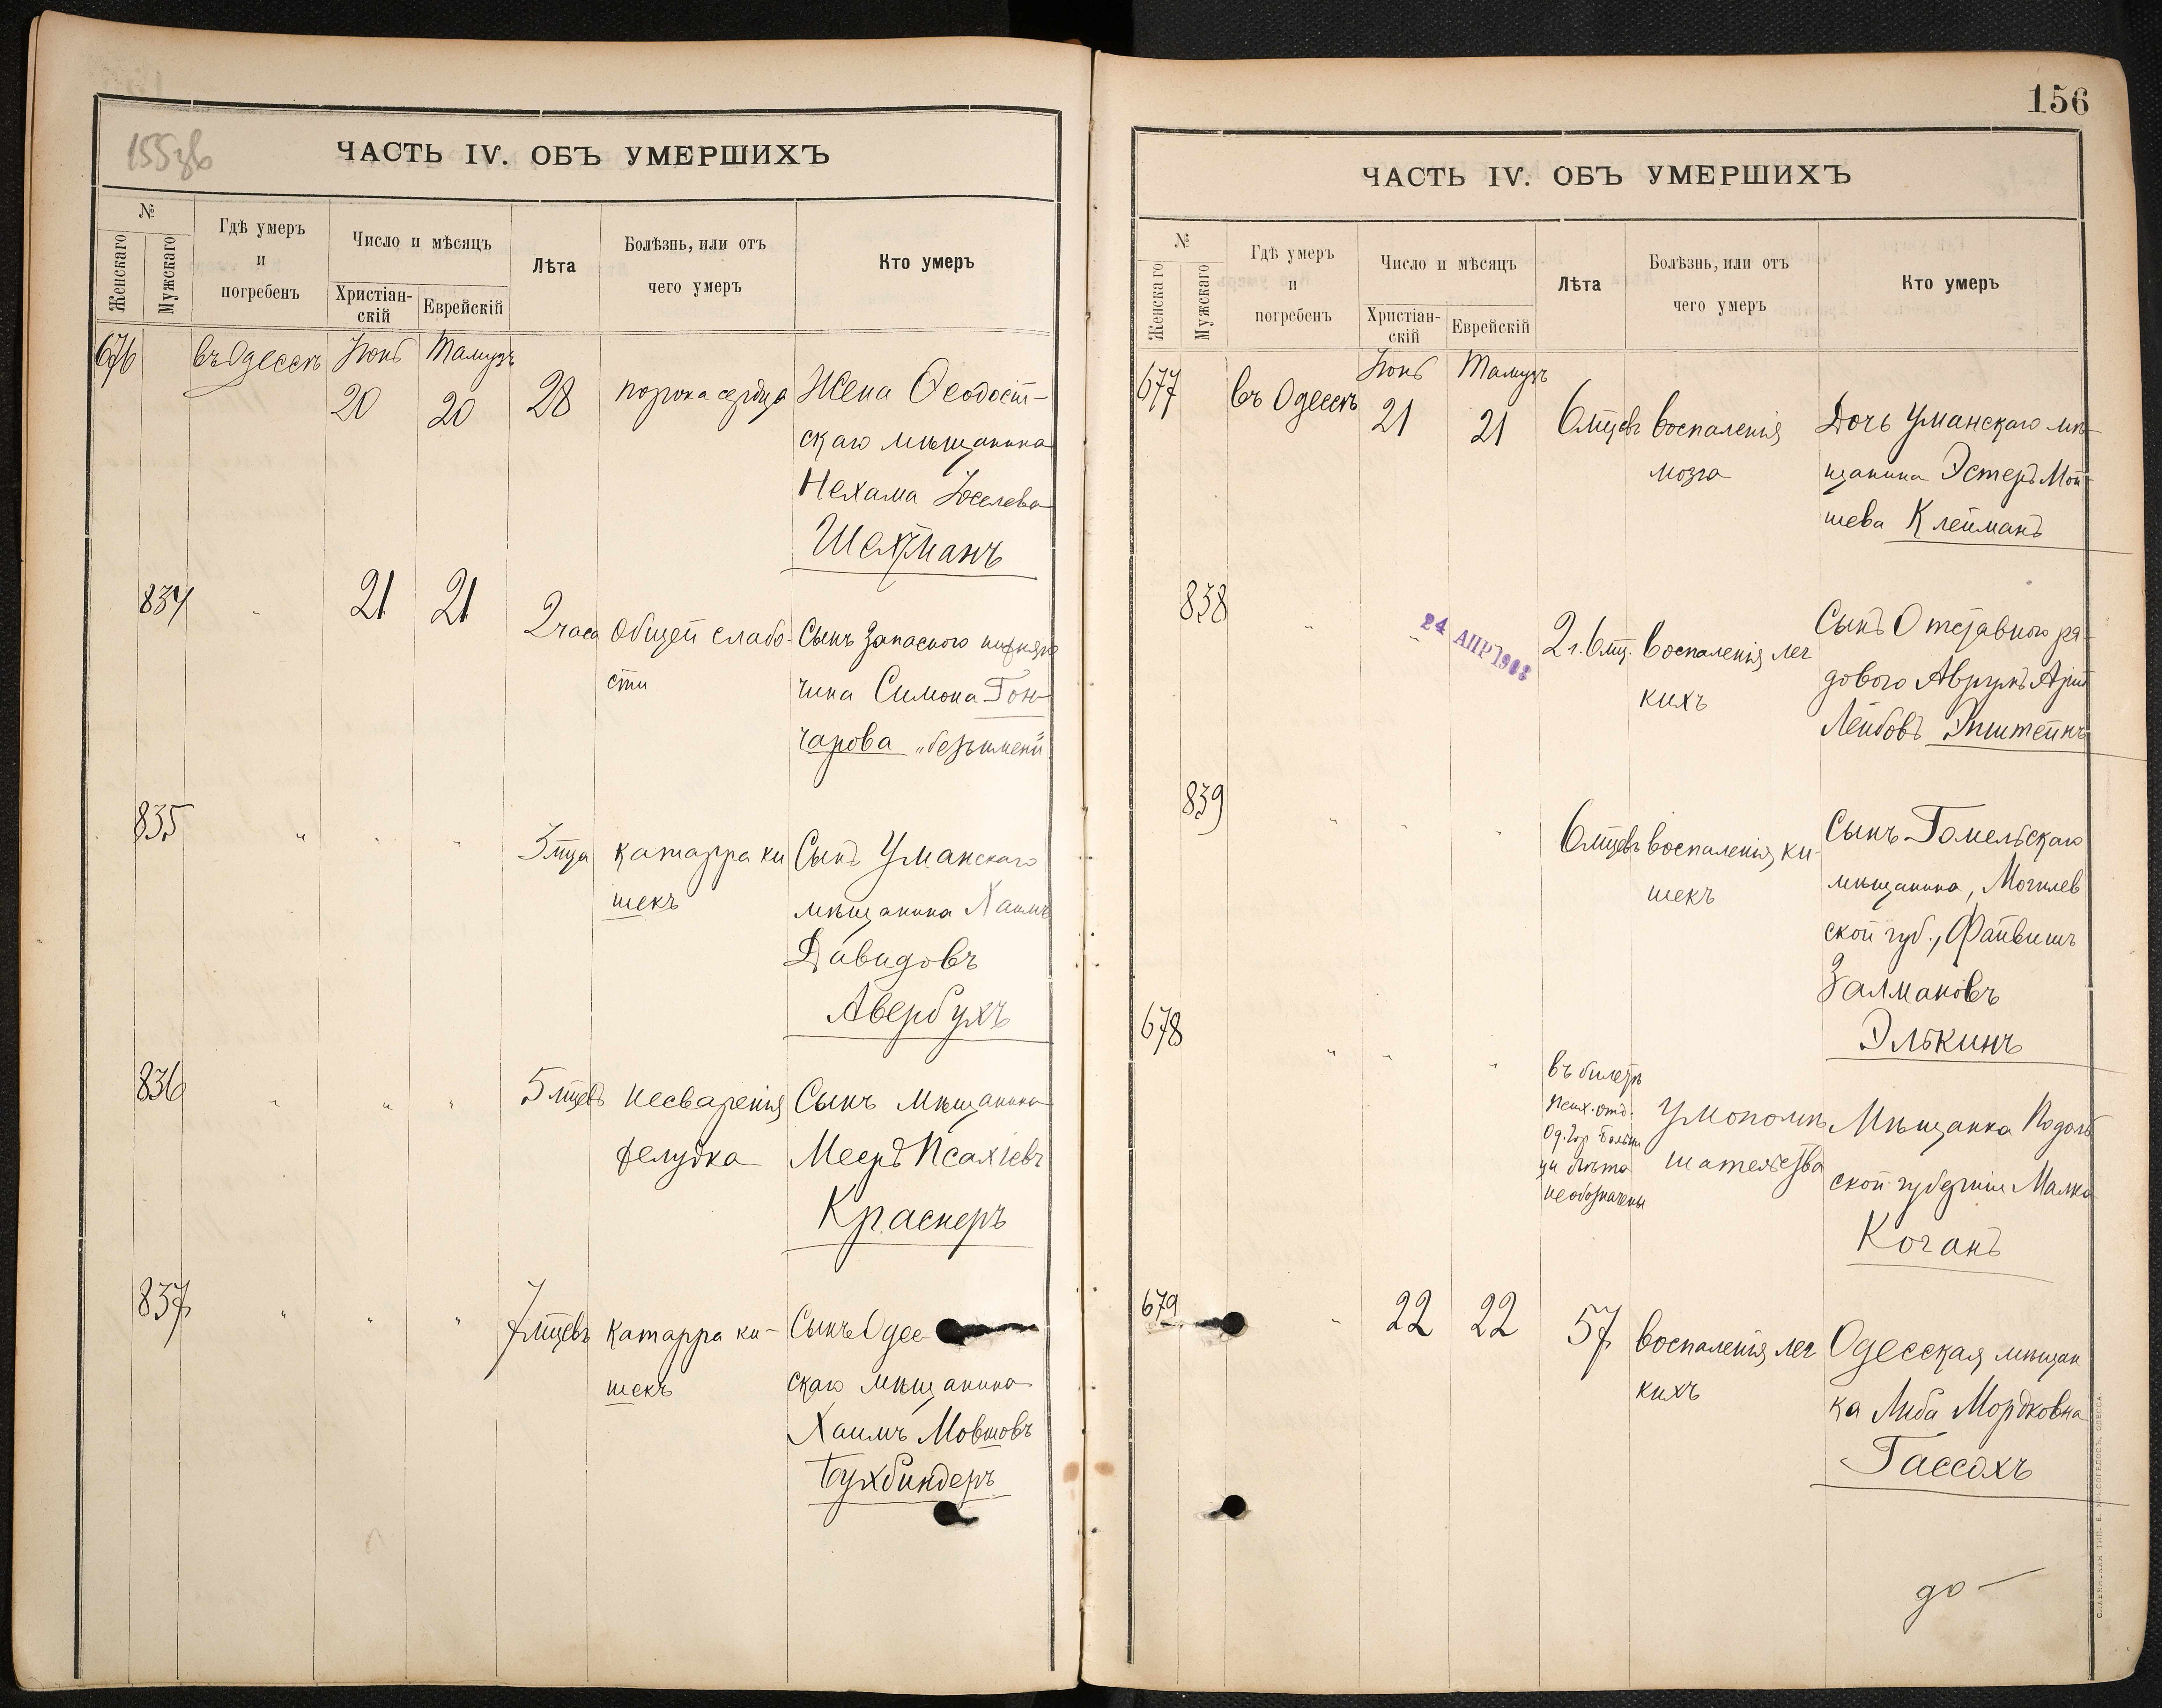 155 зв
ЧАСТЬ IV. ОБЪ УМЕРШИХЪ
№
Женскаго
Мужскаго
Гдѣ умеръ
и
погребенъ
Число и мѣсяцъ
Христіан-
скій
Еврейскій
Лѣта
Болѣзнь, или отъ
чего умеръ
Кто умеръ
676 въ Одессѣ Іюнь Тамузъ
20 20 28 порока сердца Жена Ѳеодосій-
скаго мѣщанина
Нехама Іоселева
Шехтманъ
834 " 21 21 2 часа Общей слабо- Сынъ запаснаго нижняго
сти чина Симона Гон-
чарова „безъимени"
835 " " " 3 м̃ца Катарра ки Сынъ Уманскаго
шекъ мѣщанина Хаимъ
Давидовъ
Авербухъ
836 " " " 5 м̃цевъ несваренія Сынъ Мѣщанина
желудка Мееръ Псахіевъ
Краснеръ
837 " " " 7 м̃цевъ Катарра ки- Сынъ Одес-
шекъ скаго мѣщанина
Хаимъ Мовшовъ
Бухбиндеръ
156
ЧАСТЬ IV. ОБЪ УМЕРШИХЪ
№
Женскаго
Мужскаго
Гдѣ умеръ
и
погребенъ
Число и мѣсяцъ
Христіан-
скій
Еврейскій
Лѣта
Болѣзнь, или отъ
чего умеръ
Кто умеръ
677 въ Одессѣ Іюнь Тамузъ
21 21 6 м̃цевъ воспаленія Дочь Уманскаго мѣ-
мозга щанина Эстеръ Мой-
шева Клейманъ
838 " " 24 АПР 1903 2 г. 6 м̃ц. воспаленія лег Сынъ Отставного ря-
кихъ дового Аврумъ Арій
Лейбовъ Эпштейнъ
839 " " " 6 м̃цевъ воспаленія ки- Сынъ Гомельскаго
шекъ мѣщанина, Могилев
ской губ., Файвишъ
Залмановъ
Элькинъ
678 " " " въ билетѣ
псих. отд.
Од. Гор. Больни
цы лѣта
необозначены
Умопомѣ
шательства
Мѣщанка Подоль
ской губерніи Малка
Коганъ
679 " 22 22 57 воспаленія лег Одесская мѣщан
кихъ ка Либа Мордковна
Гассохъ
до
СЛАВЯНСКАЯ ТИП. ОДЕССА.